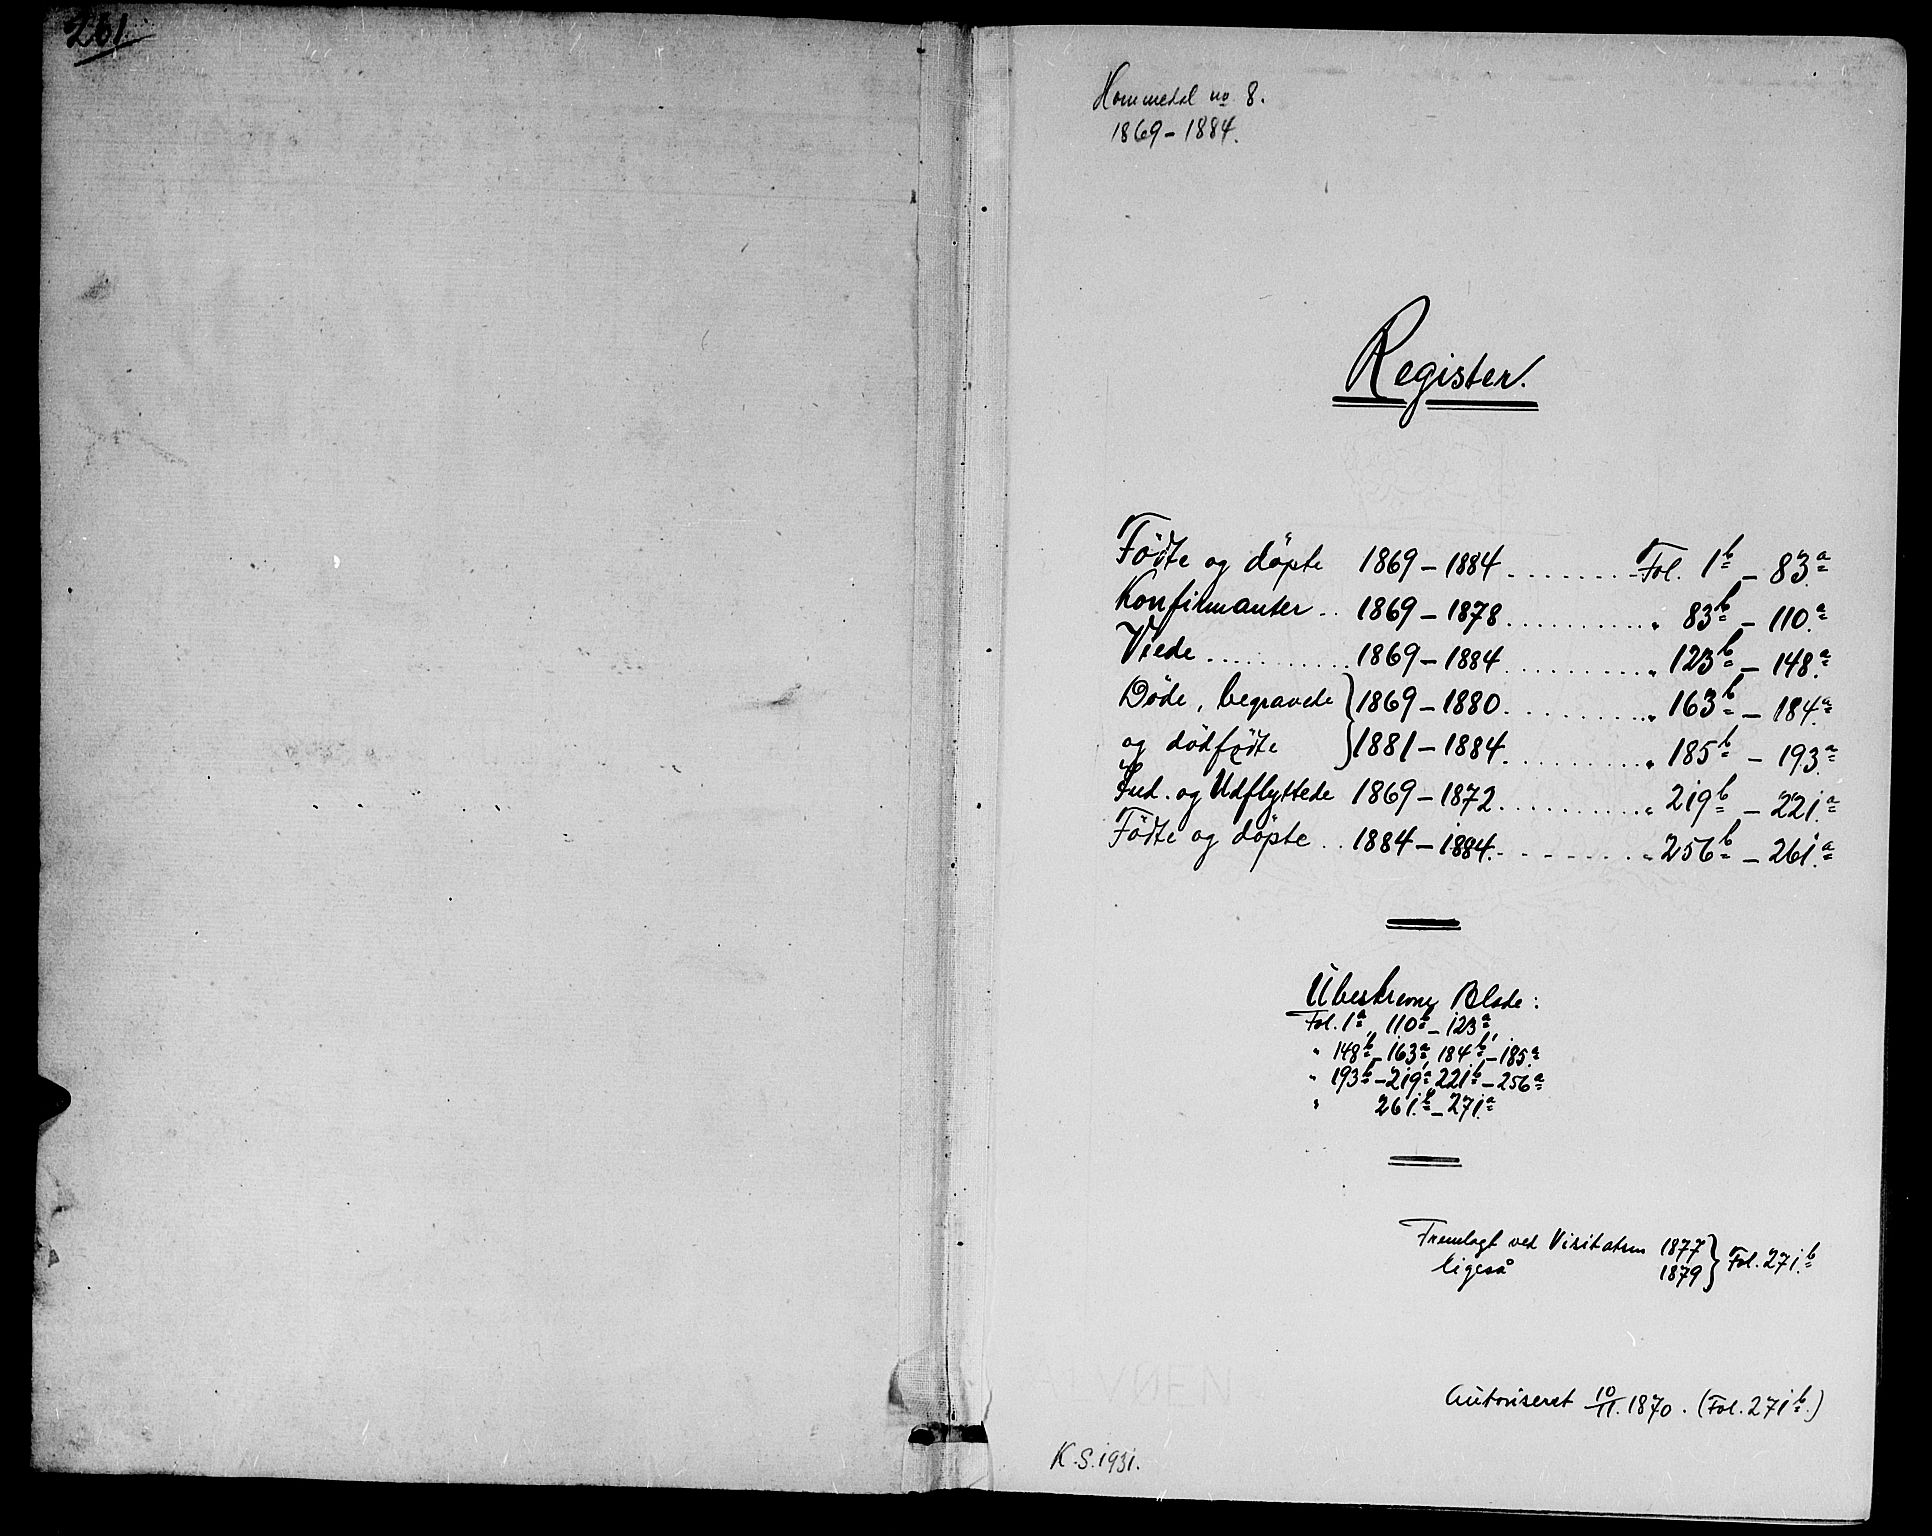 261
Hommedal no 8.
1869-1884.
Register.
Födte og döpte 1869-1884 ........ Fol. 1b - 83a
Konfirmanter .. 1869-1878 .......... " 83b - 110a
Viede .......... 1869-1884 .......... " 123b - 148a
Døde, begravede } 1869-1880 .......... " 163b - 184a
og dödfödte } 1881-1884 .......... " 185b - 193a
Ind. og Udflyttede 1869-1872 .......... " 219b - 221a
Födte og döpte .. 1884-1884 .......... " 256b - 261a
Ubeskrevne Blade:
Fol. 1a, 110b - 123a,
" 148b - 163a, 184b - 185a
" 193b - 219a, 221b - 256a
" 261b - 271a
Fremlagt ved Visitatsen 1877 } Fol. 271b
ligeså 1879
Autoriseret 10/11. 1870. (Fol. 271b.)
K.S. 1931.